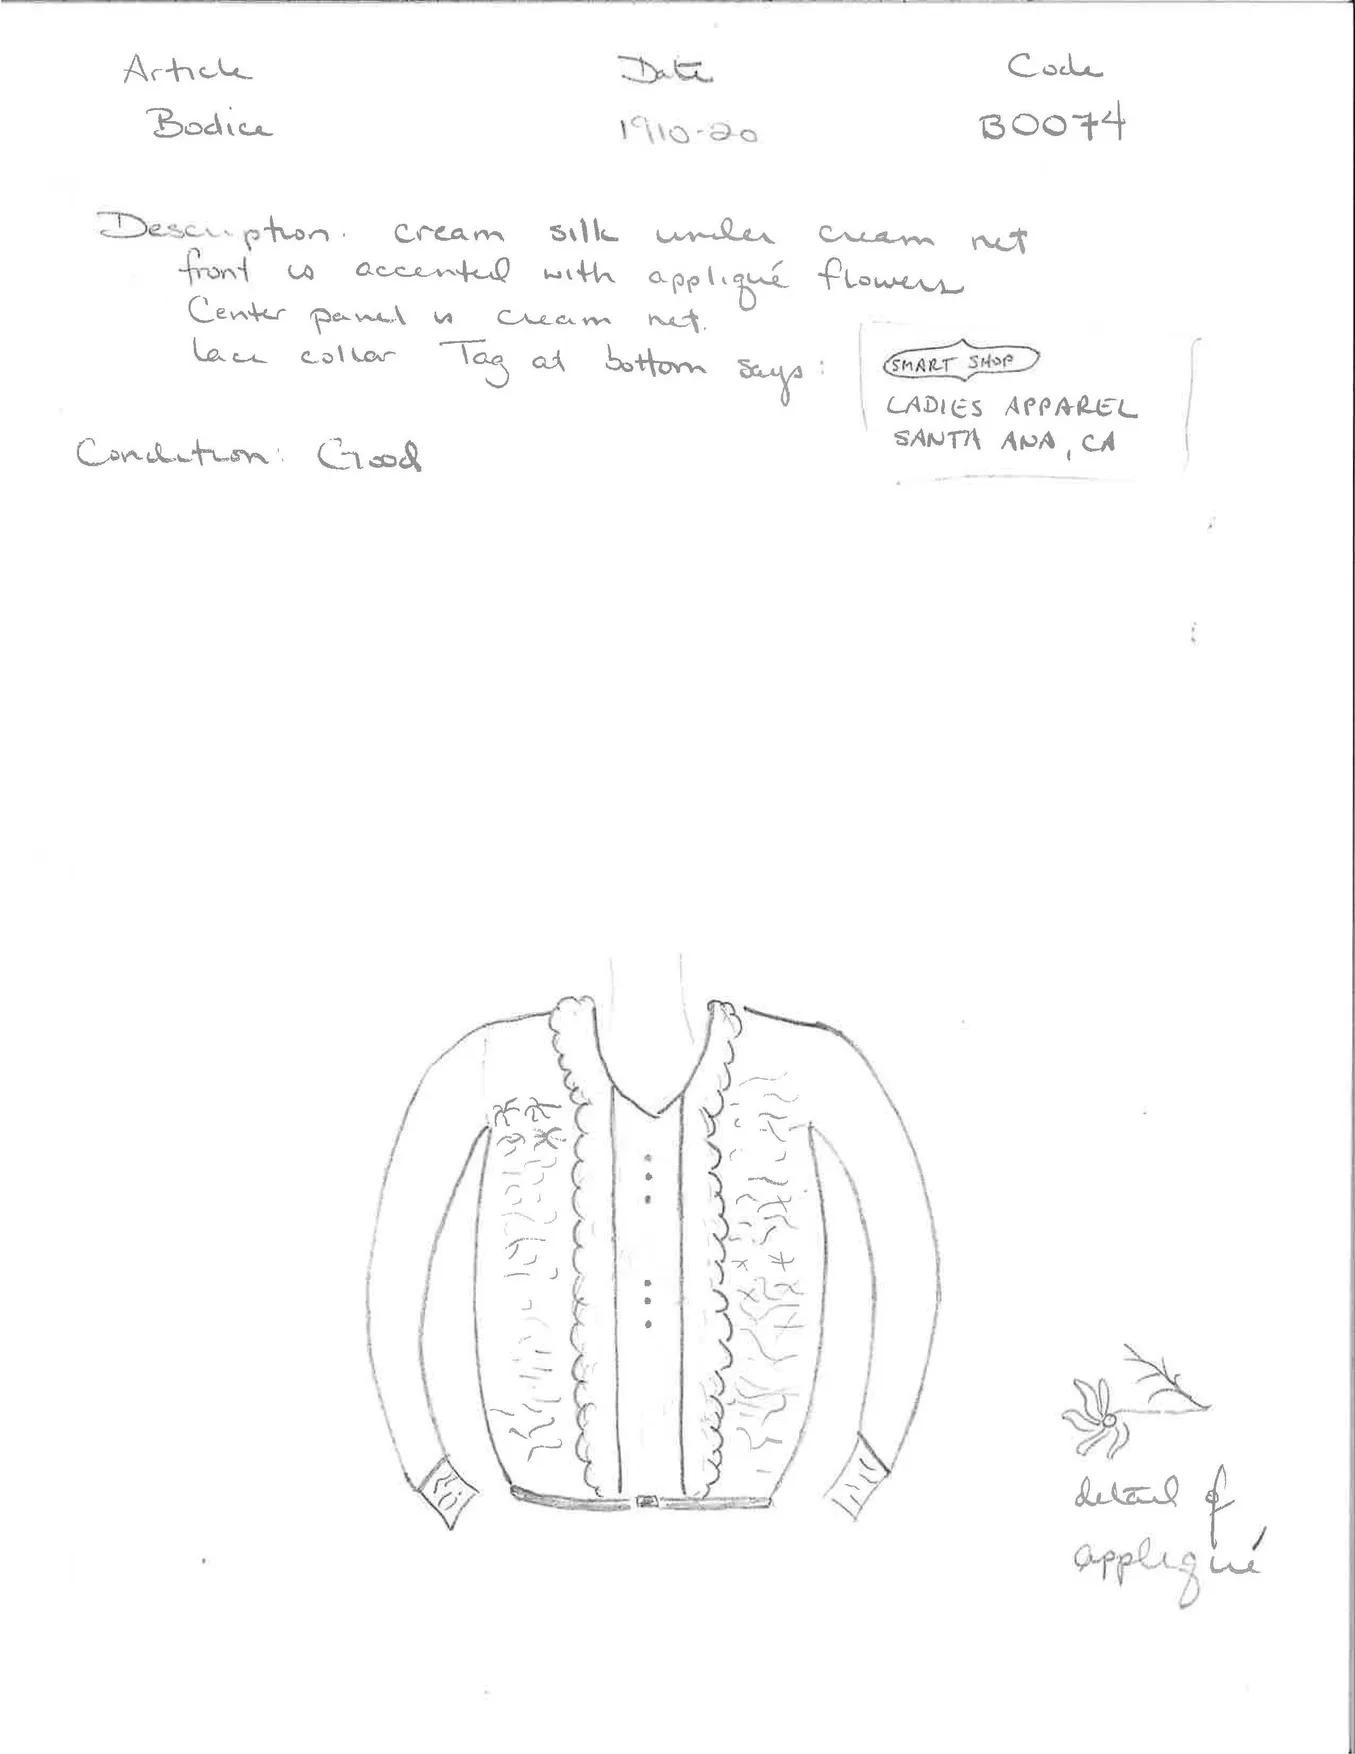 Article Date Code
Bodice 1910-20 B0074
Description. cream silk under cream net
front is accented with appliqué flowers
Center panel is cream net.
lace collar Tag at bottom says:
SMART SHOP
LADIES APPAREL
SANTA ANA, CA
Condition: Good
detail of
appliqué